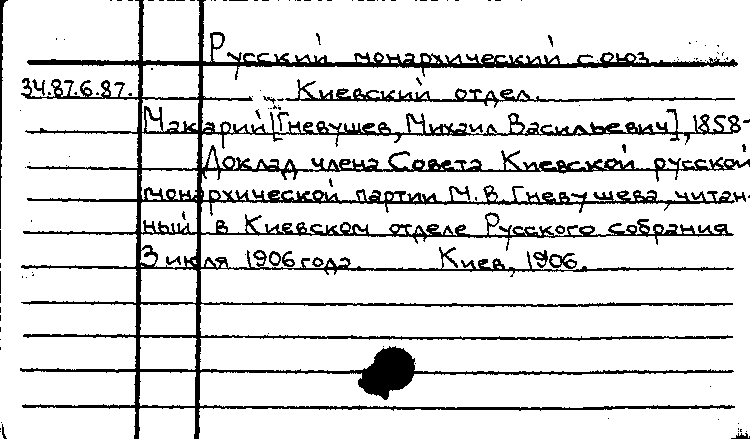 Русский монархический союз.
34.87.6.87. Киевский отдел.
Макарий [Гневушев, Михаил Васильевич], 1858-
Доклад члена Совета Киевской русской
монархической партии М.В. Гневушева, читан-
ный в Киевском отделе Русского собрания
3 июля 1906 года. Киев, 1906.